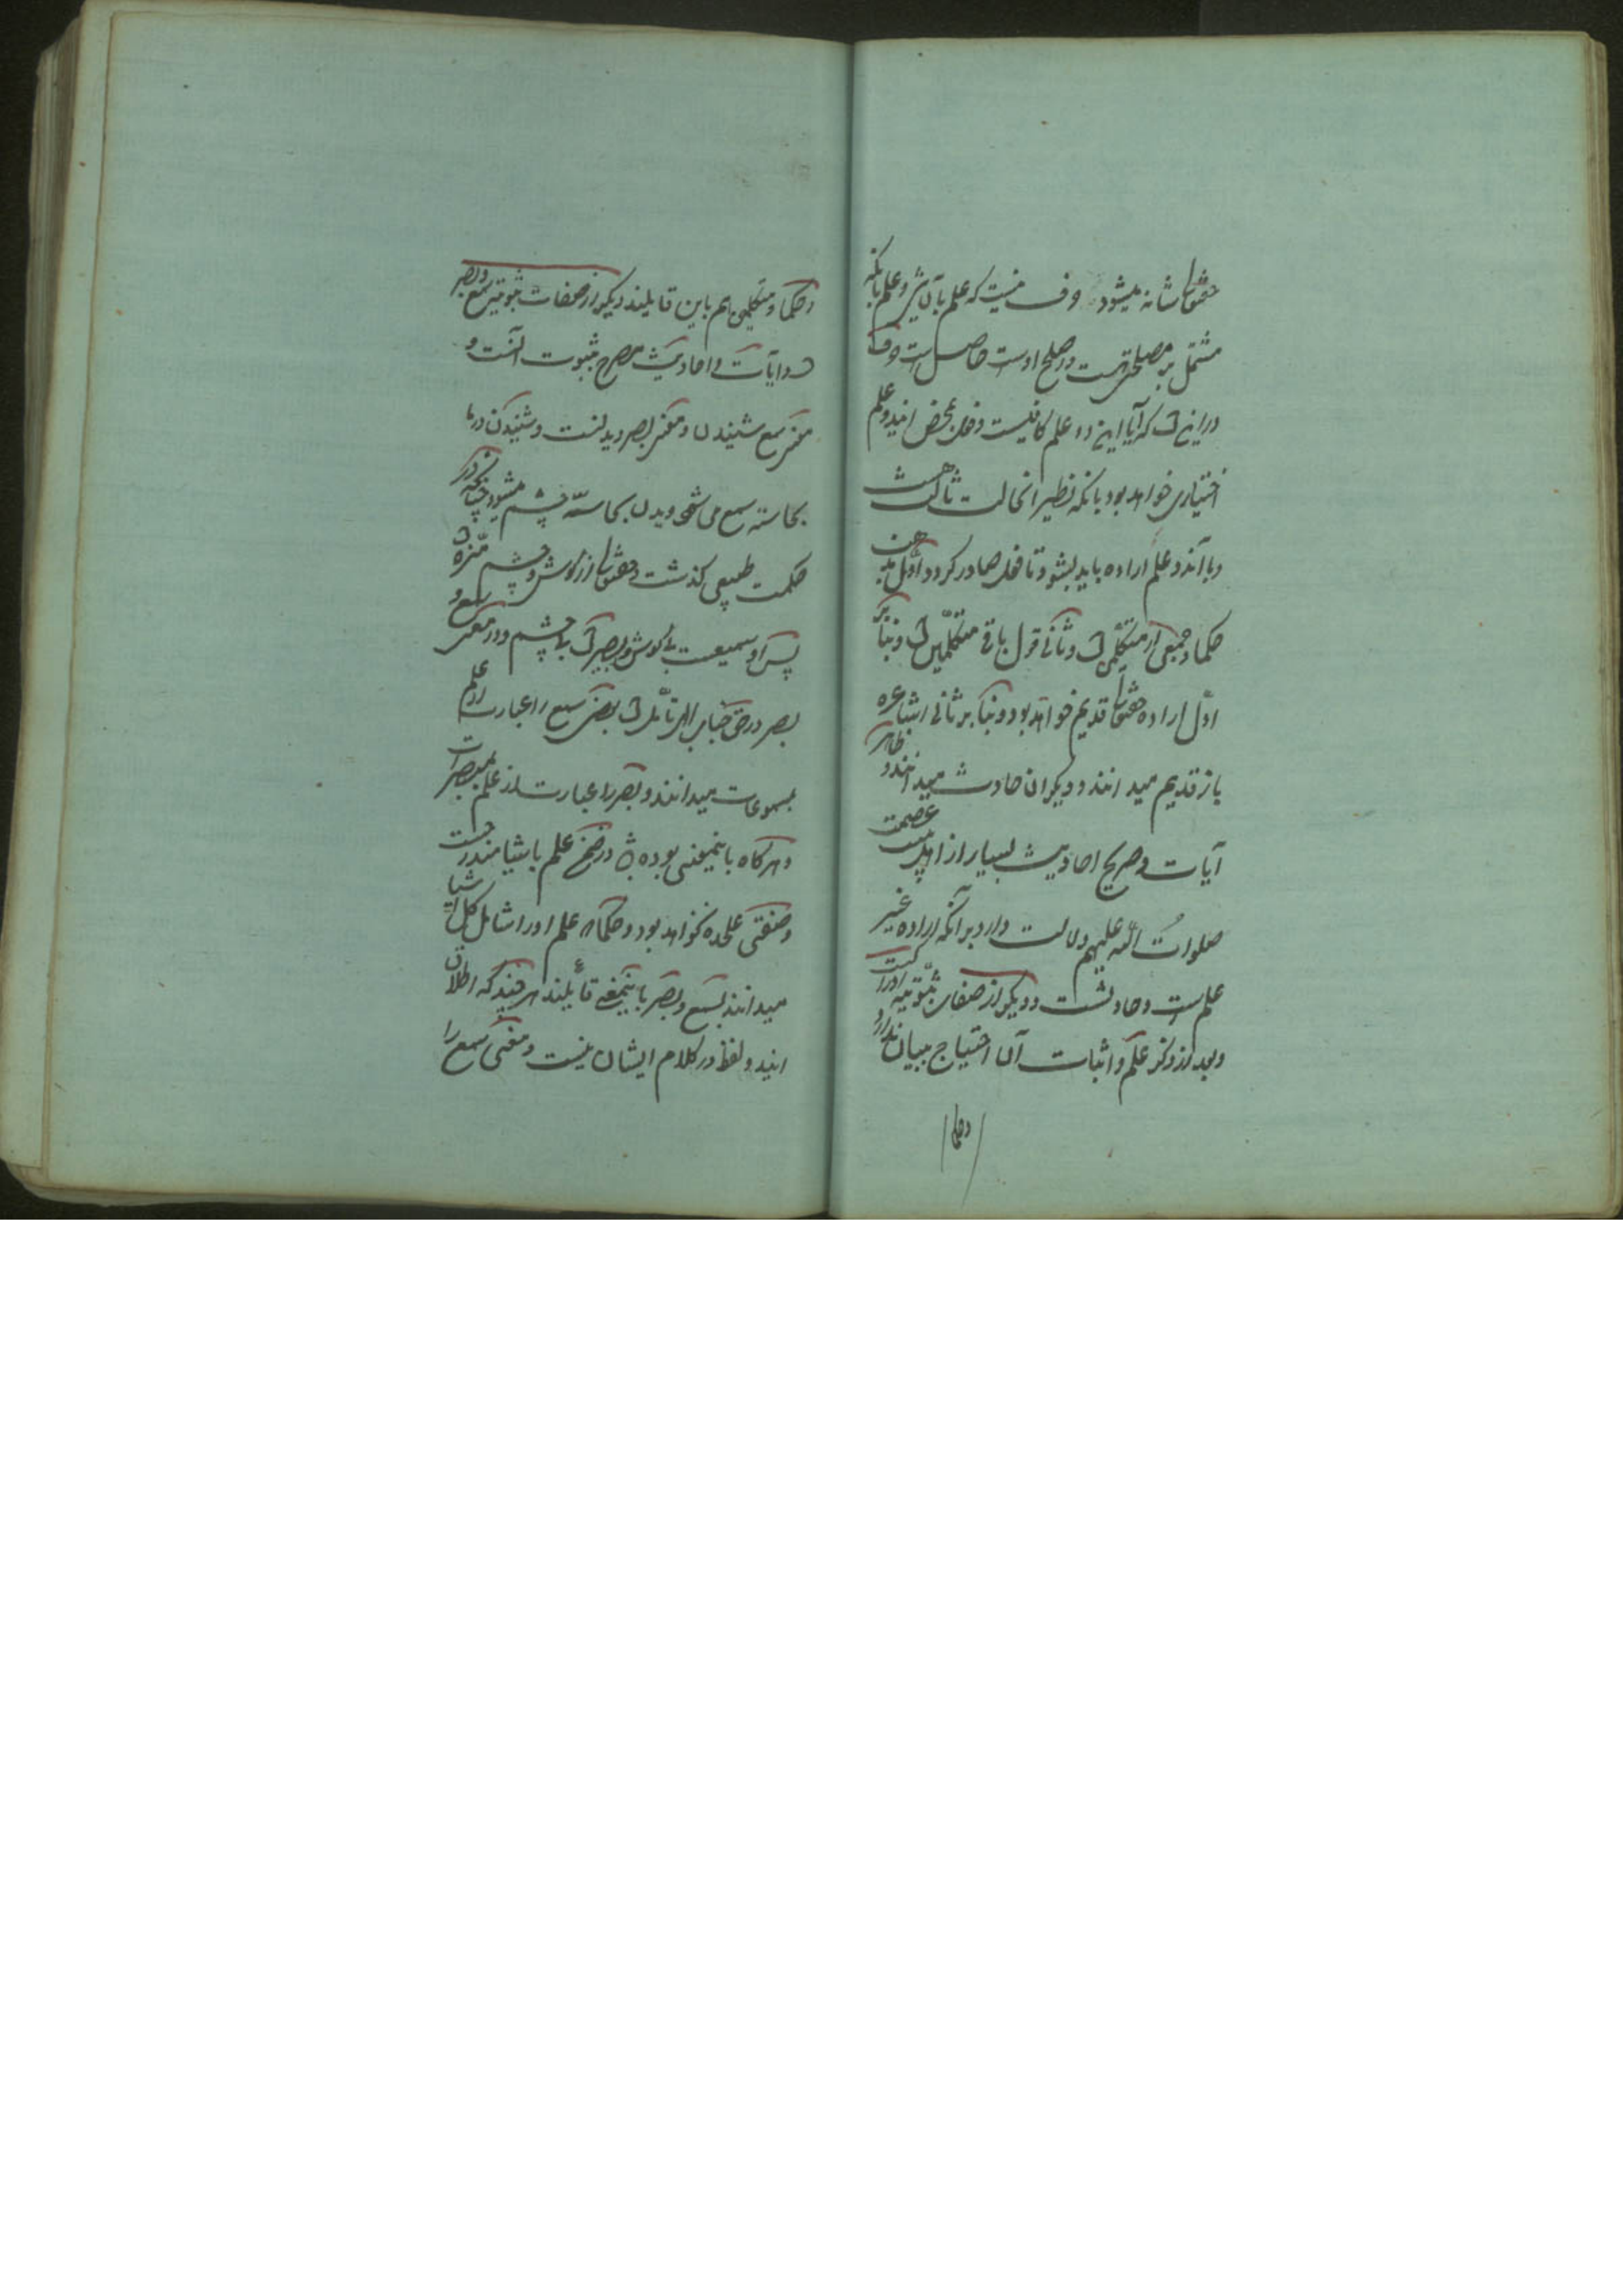 حقتعالی شانه میشود و خلاف نیست که علم بآن شیء و علم بانکه
مشتمل بر مصلحتی هست و اصلح اوست حاصل است و خلاف
در این است که آیا این دو علم کافیست و فعل بمحض ایندو علم
اختیاری خواهد بود یا نکه نظیر انحالت ثالث هست
و با آندو علم اراده باید بشود تا فعل صادر کردد اول مذهب
حکما و جمعی از متکلمین است و ثانی قول باقی متکلمین است و بنا بر
اول اراده حقتعالی قدیم خواهد بود و بنا بر ثانی اشاعره
باز قدیم میدانند و دیکران حادث میدانند و ظاهر
آیات و صریح احادیث بسیار از اهل بیت عصمت
صلوات الله علیهم دلالت دارد بر آنکه اراده غیر
علم است و حادثست و دیکر از صفات ثبوتیه ادراکست
و بعد از ذکر علم و اثبات آن احتیاج ببیان ندارد
و حکما
و حکما و متکلمین هم باین قایلند دیکر از صفات ثبوتیه سمع و بصر
است و آیات و احادیث مصرح بثبوت آنست و
معنی سمع شنیدن و معنی بصر دیدنست و شنیدن در ما
بحاسته سمع می شود و دیدن بحاسه چشم میشود چنانکه در
حکمت طبیعی کذشت و حقتعالی از کوش و چشم منزه است
پس او سمیعست بی کوش و بصیر است بی چشم و در معنی سمع و
بصر در حق جناب الهی تأمل است بعضی سمع را عبارت از علم
بمسموعات میدانند و بصر را عبارت از علم بمبصرات
و هرکاه باینمعنی بوده باشد در ضمن علم باشیا مندرجست
و صفتی علیحده نخواهد بود و حکما که علم او را شامل کل اشیا
میدانند بسمع و بصر باینمعنی قائلند هر چند که اطلاق
ایندو لفظ در کلام ایشان نیست و معنی سمع را